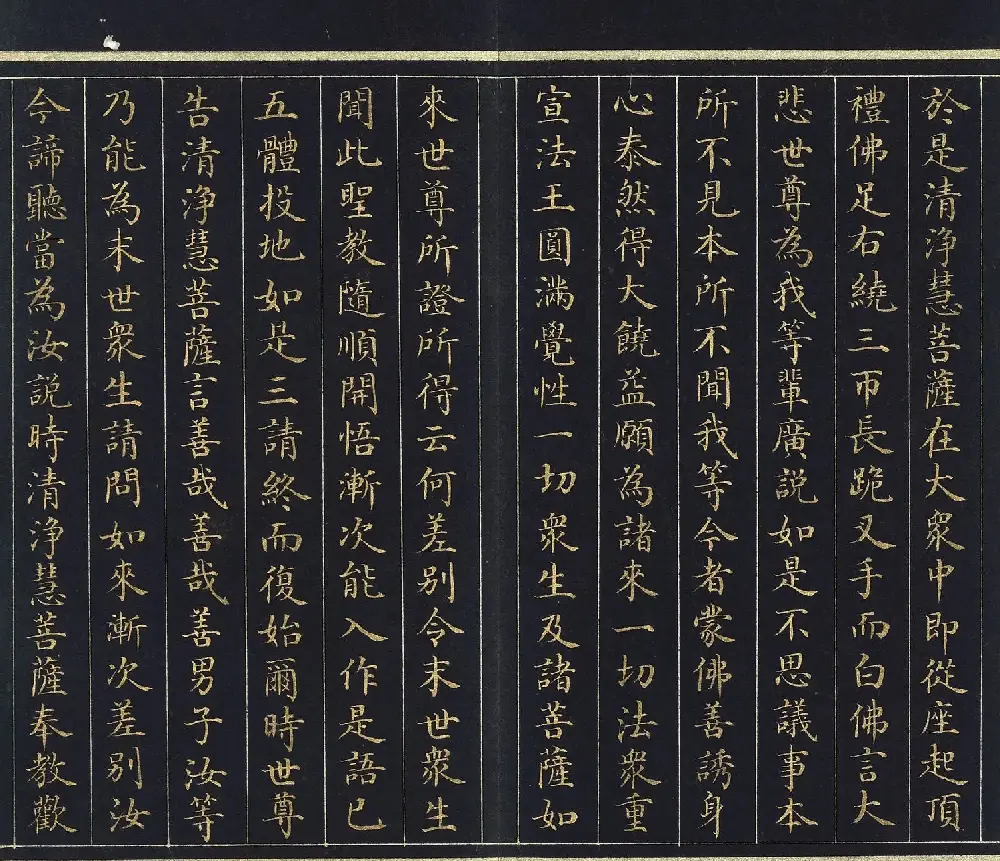 於是清淨慧菩薩在大衆中即從座起頂
禮佛足右繞三帀長跪叉手而白佛言大
悲世尊為我等輩廣説如是不思議事本
所不見本所不聞我等今者蒙佛善誘身
心泰然得大饒益願為諸來一切法衆重
宣法王圓滿覺性一切衆生及諸菩薩如
來世尊所證所得云何差别令末世衆生
聞此聖教隨順開悟漸次能入作是語已
五體投地如是三請終而復始爾時世尊
告清淨慧菩薩言善哉善哉善男子汝等
乃能為末世衆生請問如來漸次差别汝
今諦聽當為汝説時清淨慧菩薩奉教歡